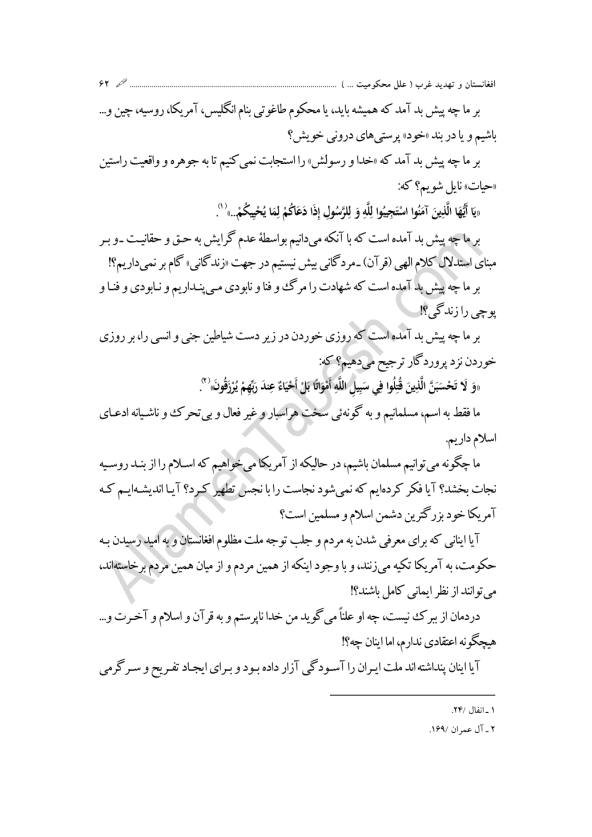 افغانستان و تهدید غرب ( علل محکومیت ... ) ........................................................................................ ۶۲
بر ما چه پیش بد آمد که همیشه باید، یا محکوم طاغوتی بنام انگلیس، آمریکا، روسیه، چین و...
باشیم و یا در بند «خود» پرستی‌های درونی خویش؟
بر ما چه پیش بد آمد که «خدا و رسولش» را استجابت نمی‌کنیم تا به جوهره و واقعیت راستین
«حیات» نایل شویم؟ که:
«یَا أَیُّهَا الَّذِینَ آمَنُوا اسْتَجِیبُوا لِلَّهِ وَ لِلرَّسُولِ إِذَا دَعَاکُمْ لِمَا یُحْیِیکُمْ...»(۱).
بر ما چه پیش بد آمده است که با آنکه می‌دانیم بواسطهٔ عدم گرایش به حق و حقانیت ـ و بر
مبنای استدلال کلام الهی (قرآن) ـ مردگانی بیش نیستیم در جهت «زندگانی» گام بر نمی‌داریم؟!
بر ما چه پیش بد آمده است که شهادت را مرگ و فنا و نابودی می‌پنداریم و نابودی و فنا و
پوچی را زندگی؟!
بر ما چه پیش بد آمده است که روزی خوردن در زیر دست شیاطین جنی و انسی را، بر روزی
خوردن نزد پروردگار ترجیح می‌دهیم؟ که:
«وَ لَا تَحْسَبَنَّ الَّذِینَ قُتِلُوا فِی سَبِیلِ اللَّهِ أَمْوَاتًا بَلْ أَحْیَاءٌ عِندَ رَبِّهِمْ یُرْزَقُونَ»(۲).
ما فقط به اسم، مسلمانیم و به گونه‌ئی سخت هراسبار و غیر فعال و بی‌تحرک و ناشیانه ادعای
اسلام داریم.
ما چگونه می‌توانیم مسلمان باشیم، در حالیکه از آمریکا می‌خواهیم که اسلام را از بند روسیه
نجات بخشد؟ آیا فکر کرده‌ایم که نمی‌شود نجاست را با نجس تطهیر کرد؟ آیا اندیشه‌ایم که
آمریکا خود بزرگترین دشمن اسلام و مسلمین است؟
آیا اینانی که برای معرفی شدن به مردم و جلب توجه ملت مظلوم افغانستان و به امید رسیدن به
حکومت، به آمریکا تکیه می‌زنند، و با وجود اینکه از همین مردم و از میان همین مردم برخاسته‌اند،
می‌توانند از نظر ایمانی کامل باشند؟!
دردمان از ببرک نیست، چه او علناً می‌گوید من خدا ناپرستم و به قرآن و اسلام و آخرت و...
هیچگونه اعتقادی ندارم، اما اینان چه؟!
آیا اینان پنداشته‌اند ملت ایران را آسودگی آزار داده بود و برای ایجاد تفریح و سرگرمی
۱ ـ انفال /۲۴.
۲ ـ آل عمران /۱۶۹.
AllamehTabesh.com